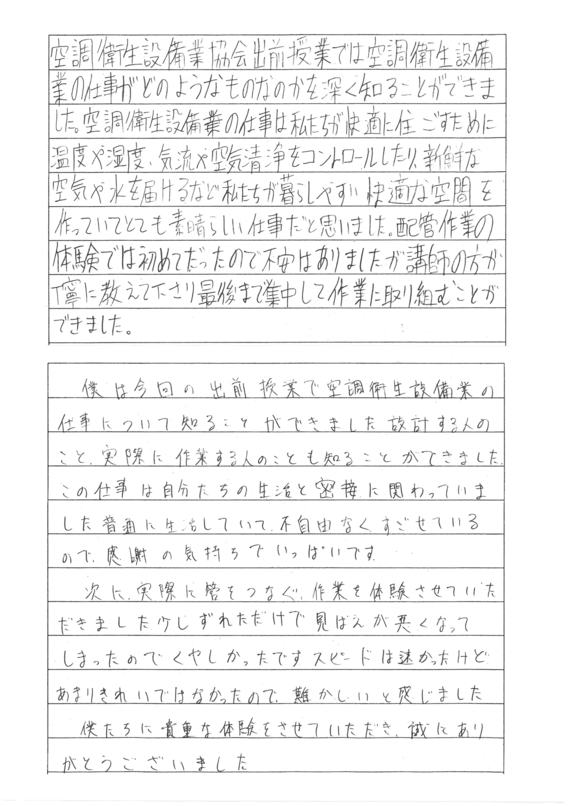 空調衛生設備業協会出前授業では空調衛生設備
業の仕事がどのようなものなのかを深く知ることができま
した。空調衛生設備業の仕事は私たちが快適に住ごすために
温度や湿度、気流や空気清浄をコントロールしたり、新鮮な
空気や水を届けるなど私たちが暮らしやすい快適な空間を
作っていてとても素晴らしい仕事だと思いました。配管作業の
体験では初めてだったので不安はありましたが講師の方が
丁寧に教えて下さり最後まで集中して作業に取り組むことが
できました。
僕は今回の出前授業で空調衛生設備業の
仕事について知ることができました設計する人の
こと、実際に作業する人のことも知ることができました。
この仕事は自分たちの生活と密接に関わっていま
した普通に生活していて、不自由なくすごせている
ので、感謝の気持ちでいっぱいです。
次に、実際に管をつなぐ、作業を体験させていた
だきました少しずれただけで見ばえが悪くなって
しまったのでくやしかったですスピードは速かったけど
あまりきれいではなかったので、難かしいと感じました
僕たちに貴重な体験をさせていただき、誠にあり
がとうございました